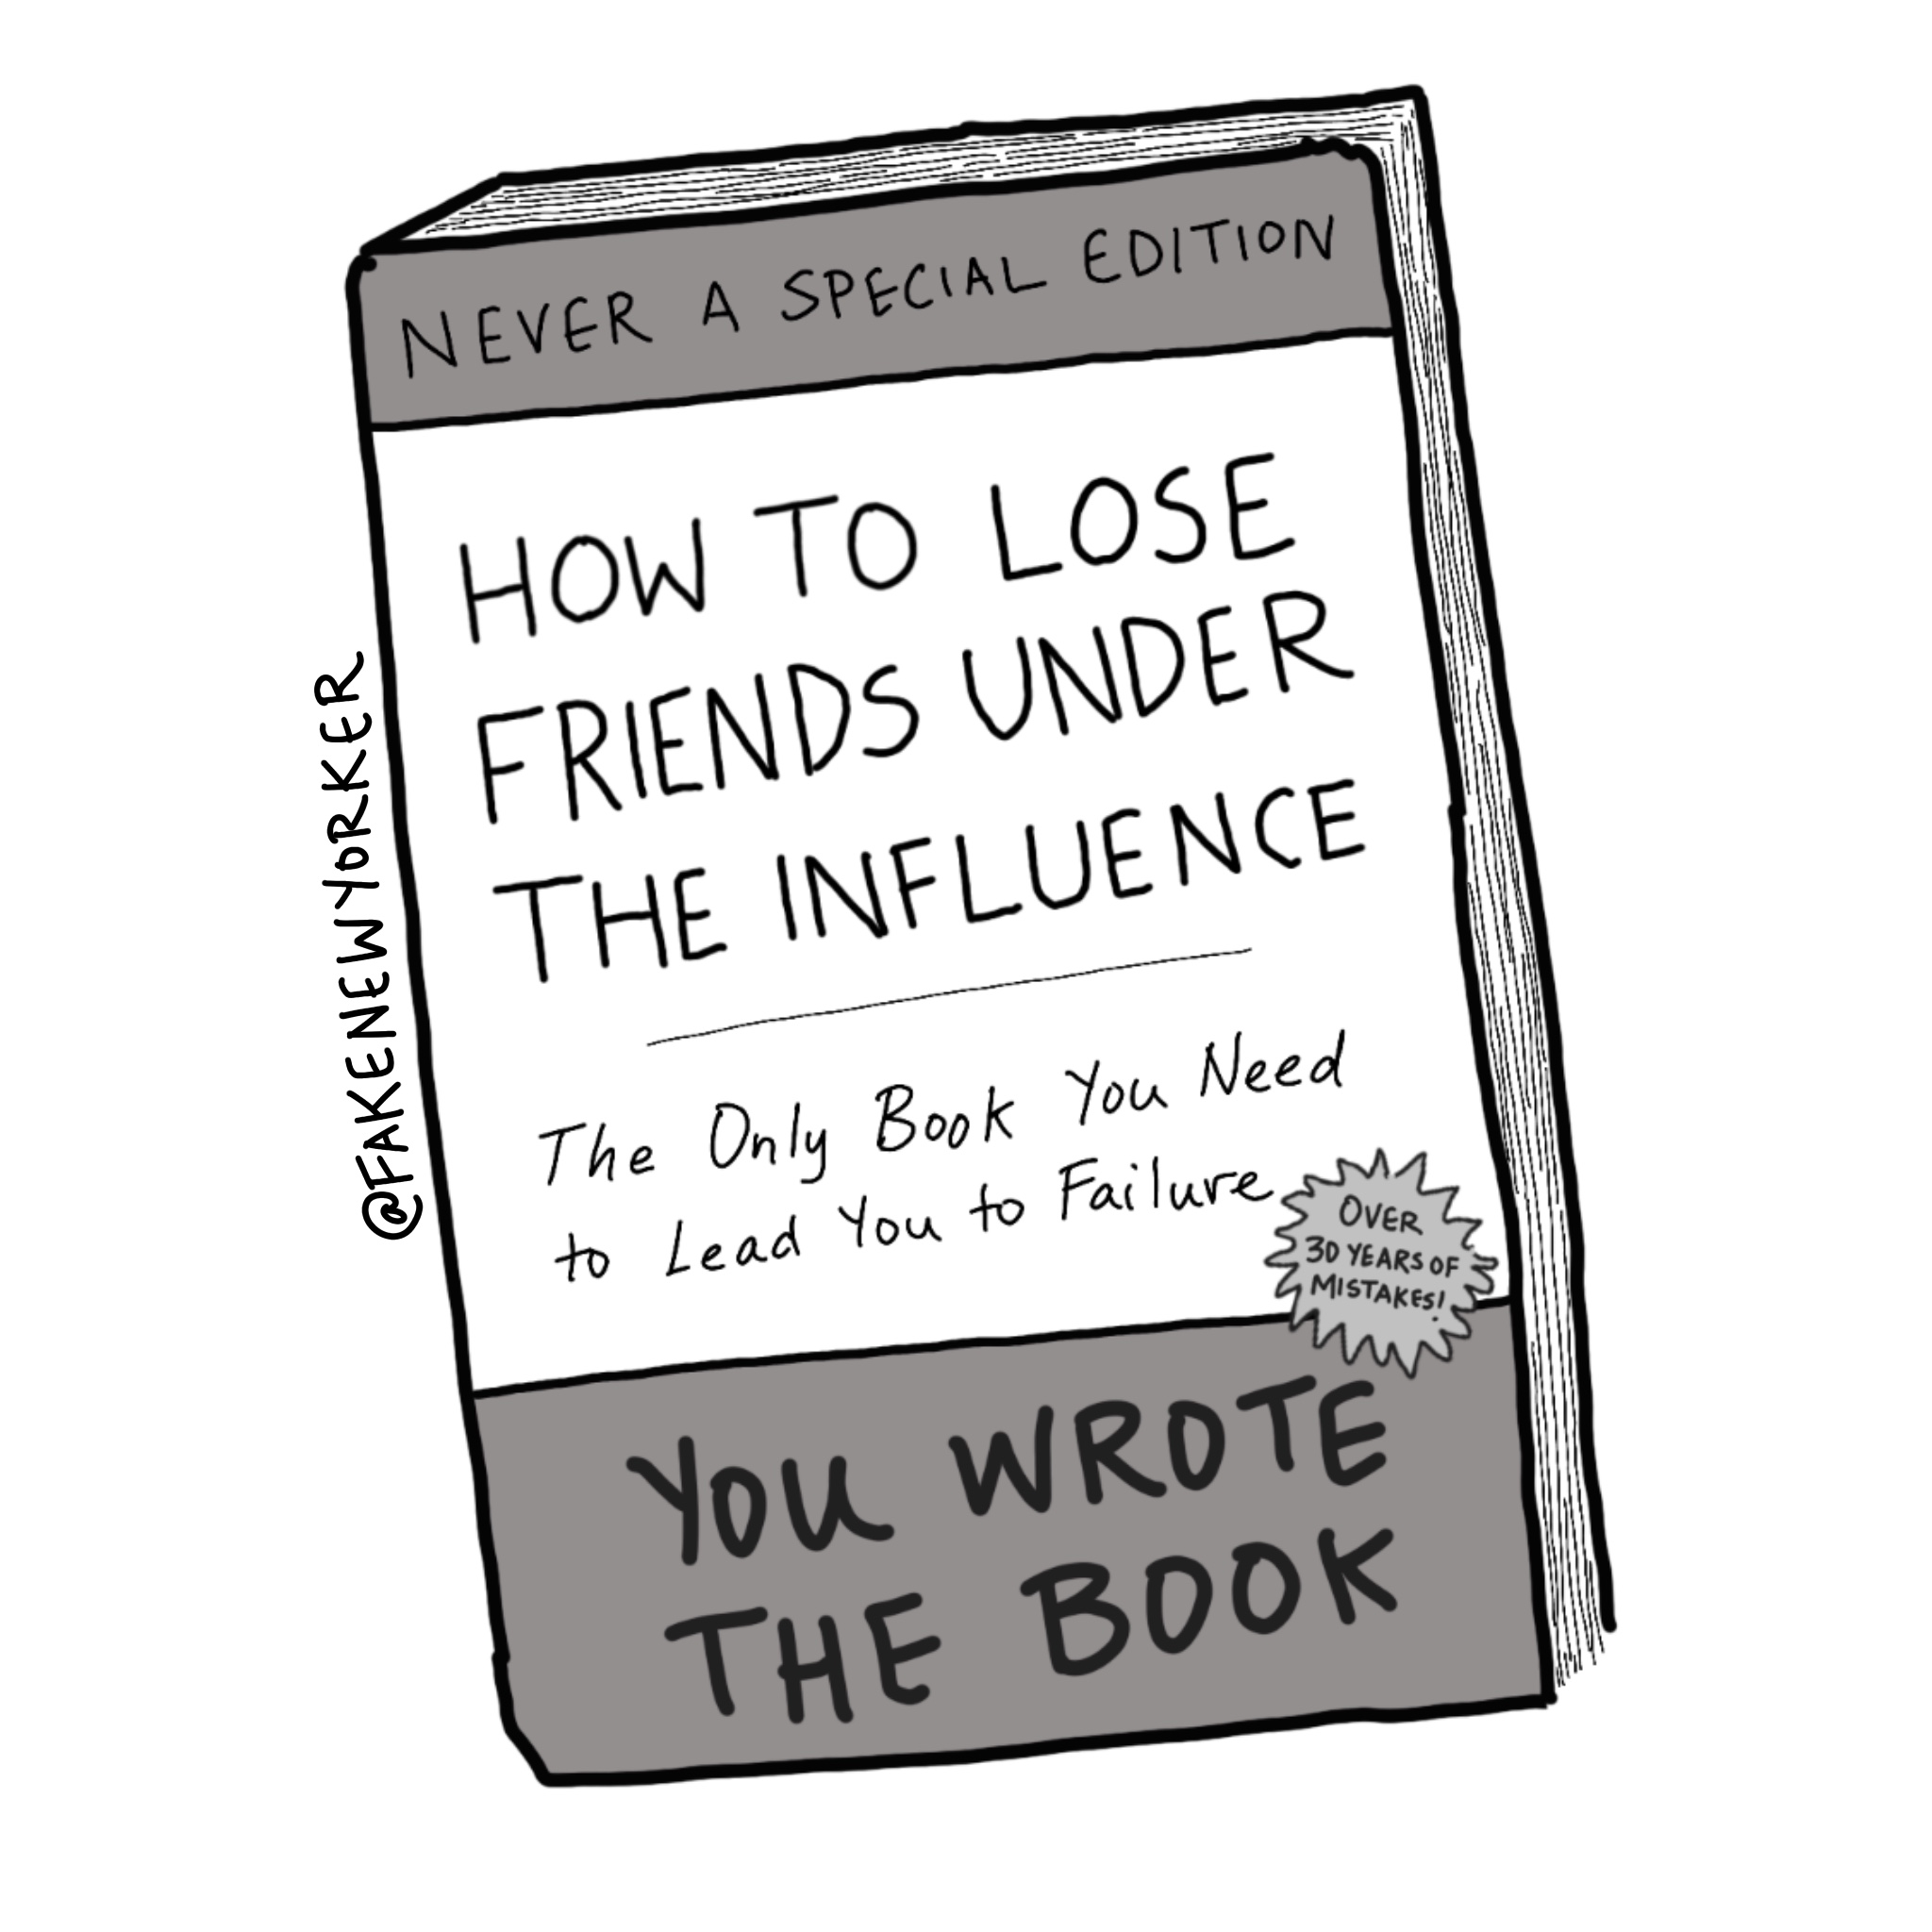 NEVER A SPECIAL EDITION
HOW TO LOSE
FRIENDS UNDER
THE INFLUENCE
The Only Book You Need
to Lead You to Failure
OVER
30 YEARS OF
MISTAKES!
YOU WROTE
THE BOOK
@FAKENEWYORKER